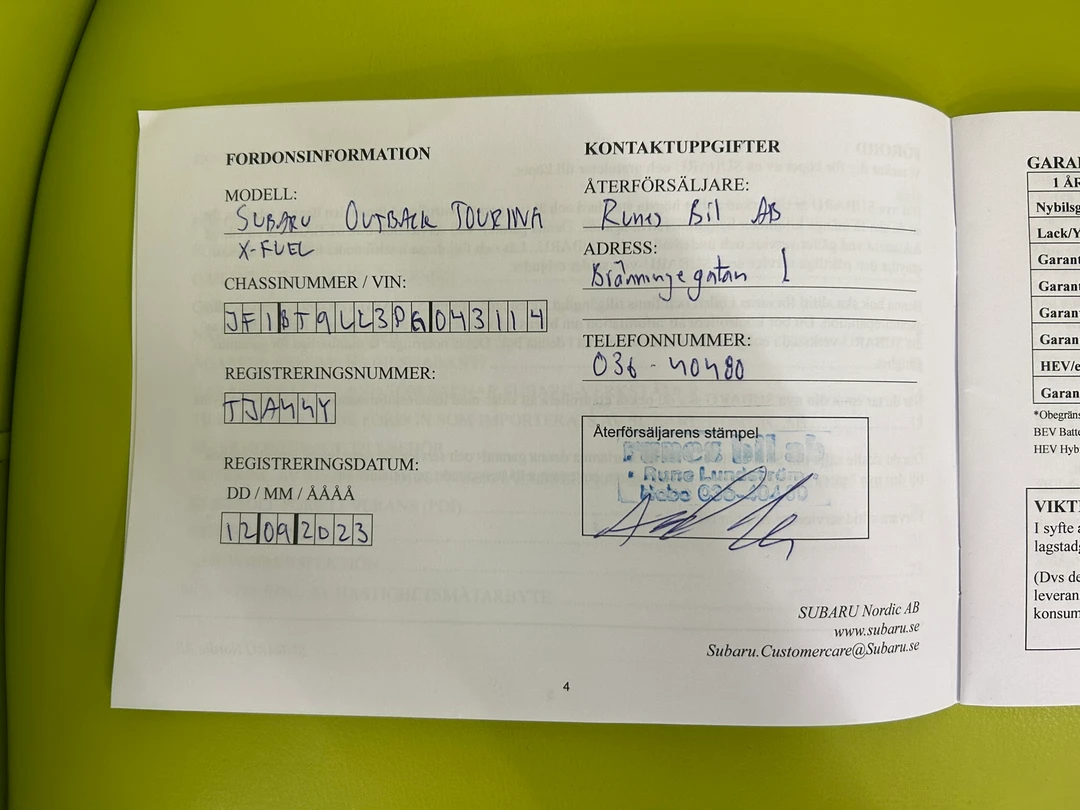 FORDONSINFORMATION
MODELL:
SUBARU OUTBACK TOURING
X-FUEL
CHASSINUMMER / VIN:
JF1BT9LL3PG043114
REGISTRERINGSNUMMER:
TJA44Y
REGISTRERINGSDATUM:
DD / MM / ÅÅÅÅ
12092023
KONTAKTUPPGIFTER
ÅTERFÖRSÄLJARE:
Runes Bil AB
ADRESS:
Bränningegatan 1
TELEFONNUMMER:
036-40480
Återförsäljarens stämpel
runes bil ab
Rune Lundström
Habo 036-40480
SUBARU Nordic AB
www.subaru.se
Subaru.Customercare@Subaru.se
4
GARA
1 ÅR
Nybilsg
Lack/Y
Garant
Garant
Garan
Garan
HEV/e
Garan
*Obegräns
BEV Batte
HEV Hyb
VIKTI
I syfte a
lagstadg
(Dvs de
leveran
konsum